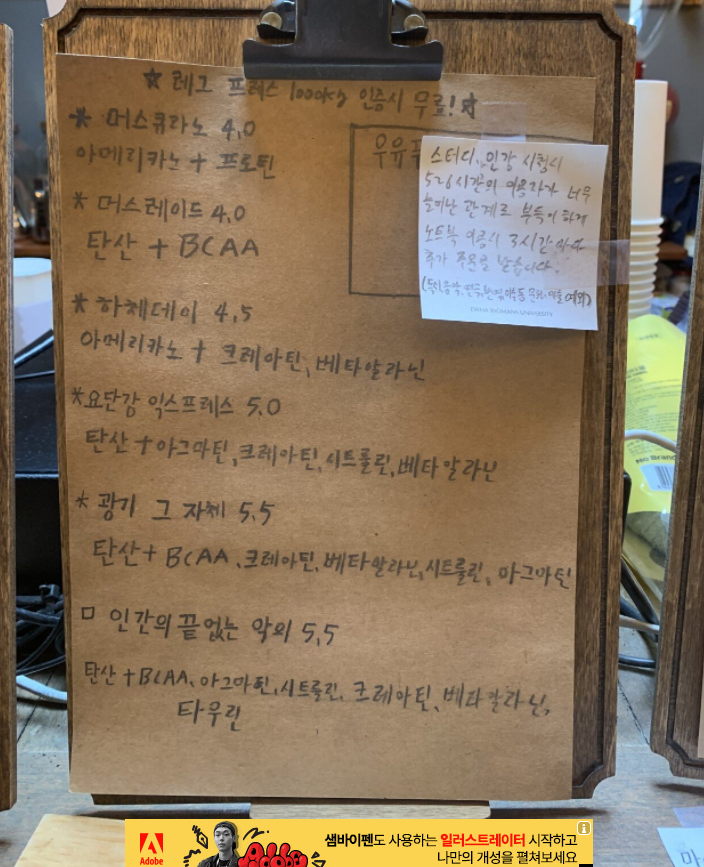 ☆ 레그 프레스 1000kg 인증시 무료! ☆
* 머스큐라노 4,0
아메리카노 + 프로틴
* 머스레이드 4,0
탄산 + BCAA
* 하체데이 4,5
아메리카노 + 크레아틴, 베타알라닌
* 요단강 익스프레스 5,0
탄산 + 아그마틴, 크레아틴, 시트룰린, 베타알라닌
* 광기 그 자체 5,5
탄산 + BCAA, 크레아틴, 베타알라닌, 시트룰린, 아그마틴
□ 인간의 끝없는 악의 5,5
탄산 + BCAA, 아그마틴, 시트룰린, 크레아틴, 베타알라닌,
타우린
우유
스터디, 인강 시청시
5~6시간의 이용자가 너무
늘어난 관계로 부득이하게
노트북 이용시 3시간마다
추가 주문을 받습니다.
UNIVERSITY
Adobe
샘바이펜도 사용하는 일러스트레이터 시작하고
나만의 개성을 펼쳐보세요